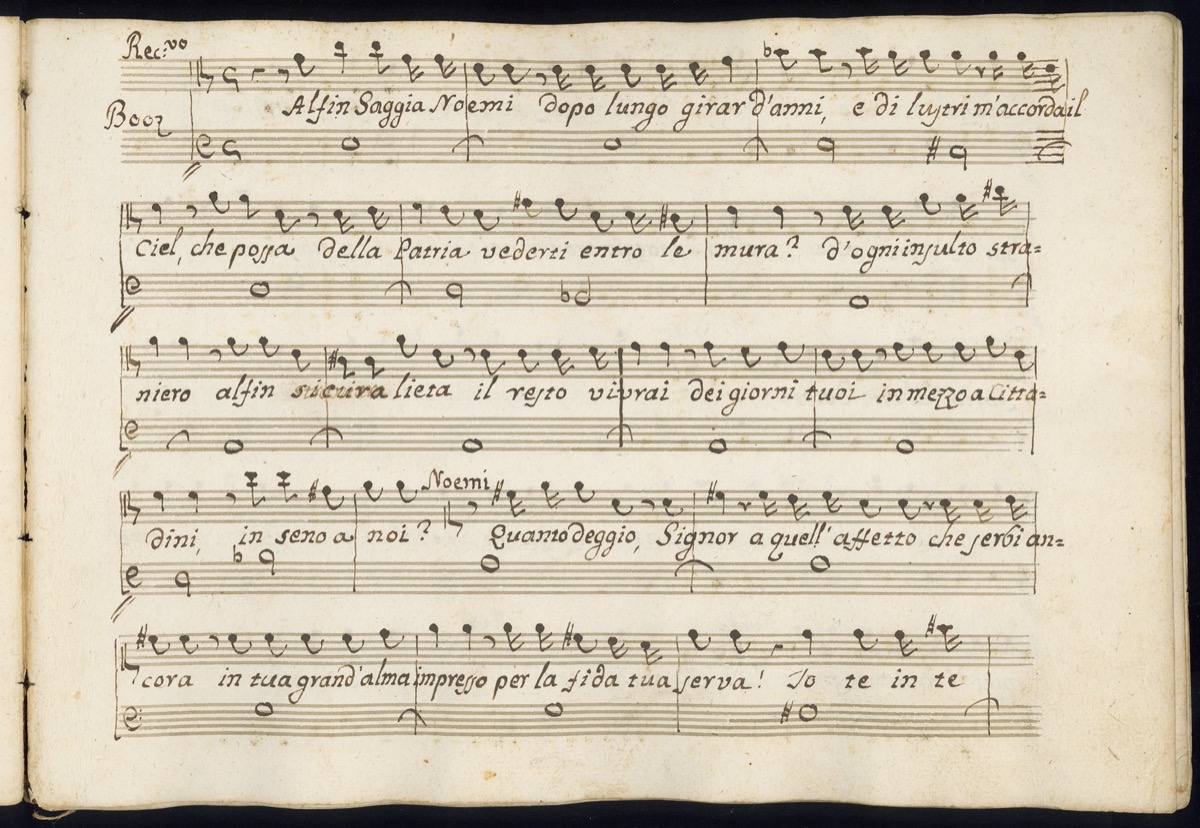 Rec:vo
Booz
Alfin Saggia Noemi dopo lungo girar d'anni, e di lustri m'accorda il
Ciel, che possa della Patria vederti entro le mura? d'ogni insulto stra=
niero alfin sicura lieta il resto vivrai dei giorni tuoi in mezzo a Citta=
Noemi
dini, in seno a noi? Quanto deggio, Signor a quell'affetto che serbi an=
cora in tua grand'alma impresso per la fida tua serva! Io te in te